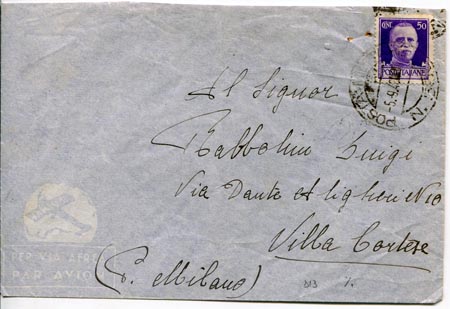 CENT. 50
POSTE ITALIANE
POSTA
Al Signor
Rabbolini Luigi
Via Dante Alighieri N 10
Villa Cortese
(P. Milano)
PER VIA AEREA
PAR AVION